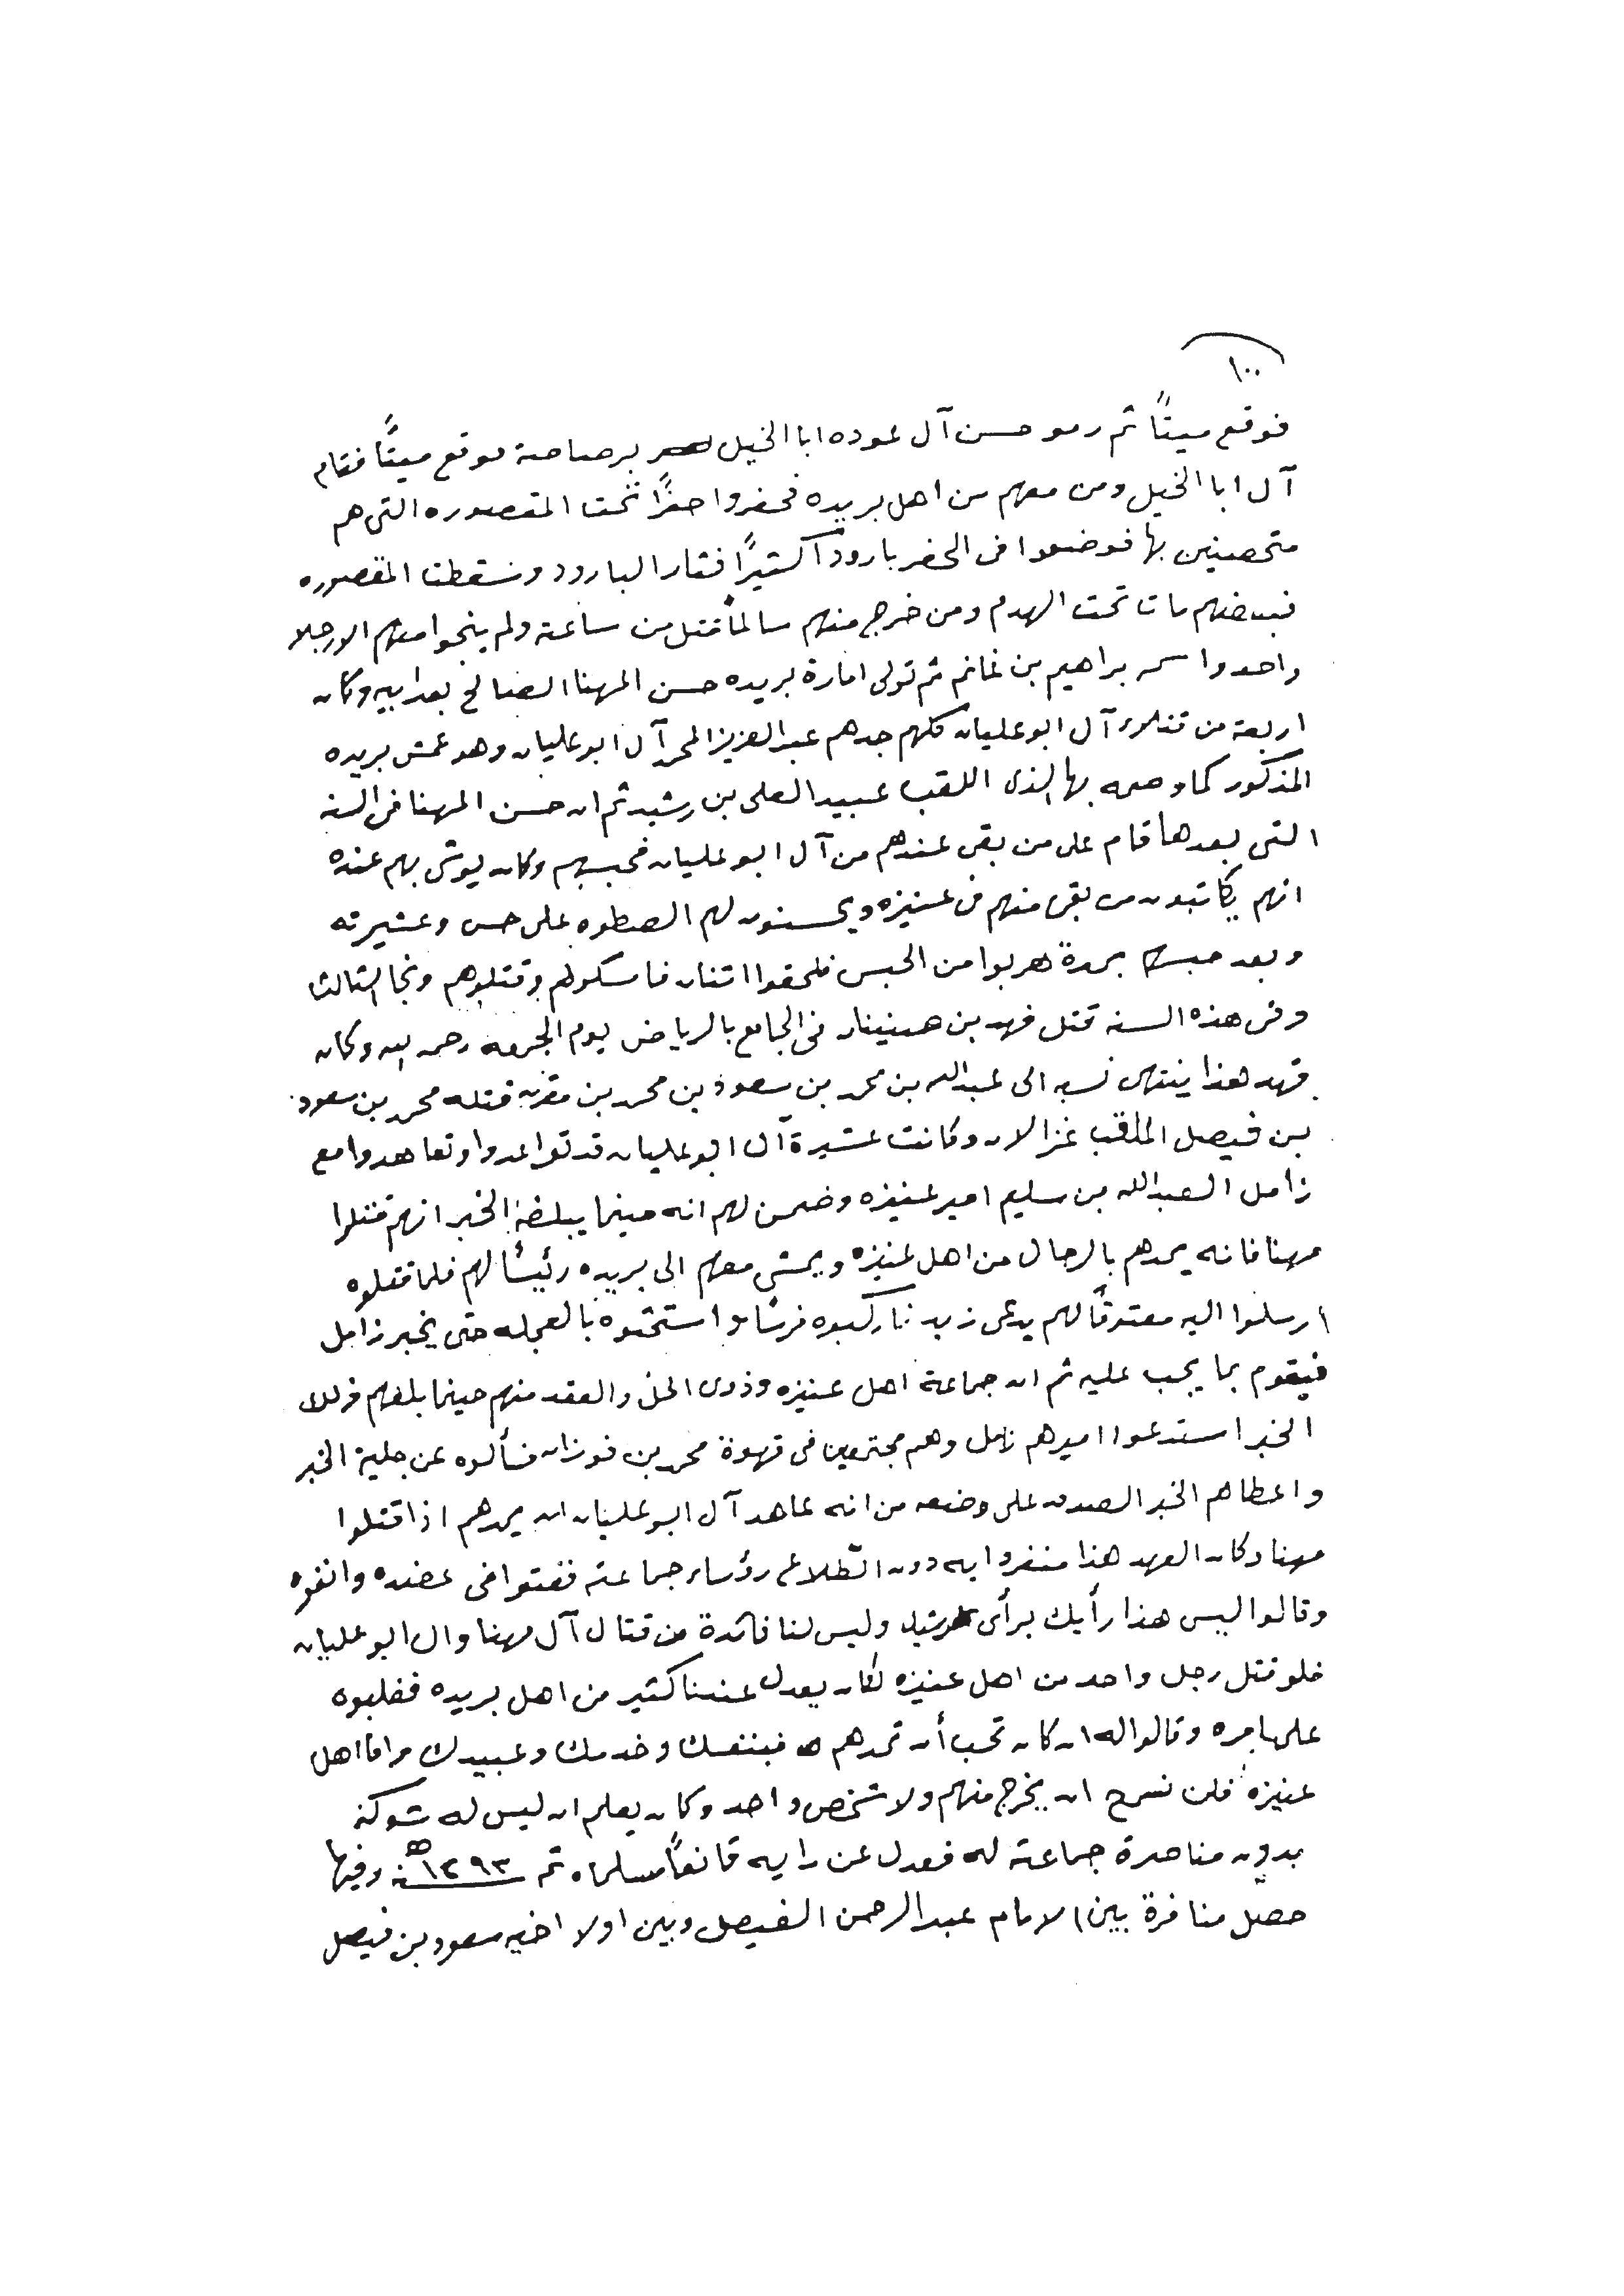 ١٠٠
فوقع ميتاً ثم رمو حسن آل عوده ابا الخيل برصاصة فوقع ميتاً فقام
آل ابا الخيل ومن معهم من اهل بريده فحفروا حفراً تحت المقصوره التى هم
متحصنين بها فوضعوا فى الحفر باروداً كثيراً فثار البارود وسقطت المقصوره
فبعضهم مات تحت الهدم ومن خرج منهم سالماً قتل من ساعته ولم ينجوا منهم الا رجلا
واحد واسمه براهيم بن غانم ثم تولى امارة بريده حسن المهنا الصالح بعد ابيه وكان
اربعة من آل ابو عليان كلهم جدهم عبد العزيز المحمد آل ابو عليان وهو عمش بريده
المذكور كما وصمه بها الذى اللقب عبيد العلى بن رشيد ثم ان حسن المهنا فى السنه
التى بعدها قام على من بقى عندهم من آل ابو عليان فحبسهم وكان يوشى بهم عنده
انهم يكاتبون من بقى منهم فى عنيزه ويحسنون لهم السطوه على حسن وعشيرته
وبعد حبسهم بمدة هربوا من الحبس فلحقوا اثنان فامسكوهم وقتلوهم ونجا الثالث
وفى هذه السنه قتل فهد بن صنيتان فى الجامع بالرياض يوم الجمعه رحمه الله وكان
فهد هذا ينتهى نسبه الى عبدالله بن محمد بن سعود بن محمد بن مقرن قتله محمد بن سعود
بن فيصل الملقب غزالان وكانت عشيرة آل ابو عليان قد تواعدوا وتعاهدوا مع
زامل العبدالله بن سليم امير عنيزه وضمن لهم انه حينما يبلغه الخبر انهم قتلوا
مهنا فانه يمدهم بالرجال من اهل عنيزه ويمشى معهم الى بريده رئيسًا لهم فلما قتلوه
ارسلوا اليه معتوقًا لهم يدعى زيد فاركبوه فرسًا واستحثوه بالعجله حتى يخبر زامل
فيقوم بما يجب عليه ثم ان جماعة اهل عنيزه وذوى الحل والعقد منهم حينما بلغهم
الخبر استدعوا اميرهم زامل وهم مجتمعين فى قهوة محمد بن فوزان فسألوه عن جلية الخبر
واعطاهم الخبر الصدق على وضعه من انه عاهد آل ابو عليان ان يمدهم اذا قتلوا
مهنا وكان العهد هذا منفردا به دون اطلاع رؤساء جماعته ففتوا فى عضده وانفوه
وقالوا ليس هذا رأيك برأى رشيد وليس لنا فائدة من قتال آل مهنا وال ابو عليان
فلو قتل رجل واحد من اهل عنيزه لكان يعدل عندنا كثير من اهل بريده فغلبوه
على امره وقالوا له ان كان تحب أن تمدهم فبنفسك وخدمك وعبيدك واما اهل
عنيزه فلن نسمح ان يخرج منهم ولا شخص واحد وكان يعلم ان ليس له شوكة
بدون مناصرة جماعته له فعدل عن رايه قانعاً مسلماه ثم سنة ١٢٩٣هـ وفيها
حصل منافرة بين الامام عبدالرحمن الفيصل وبين اولا اخيه سعود بن فيصل